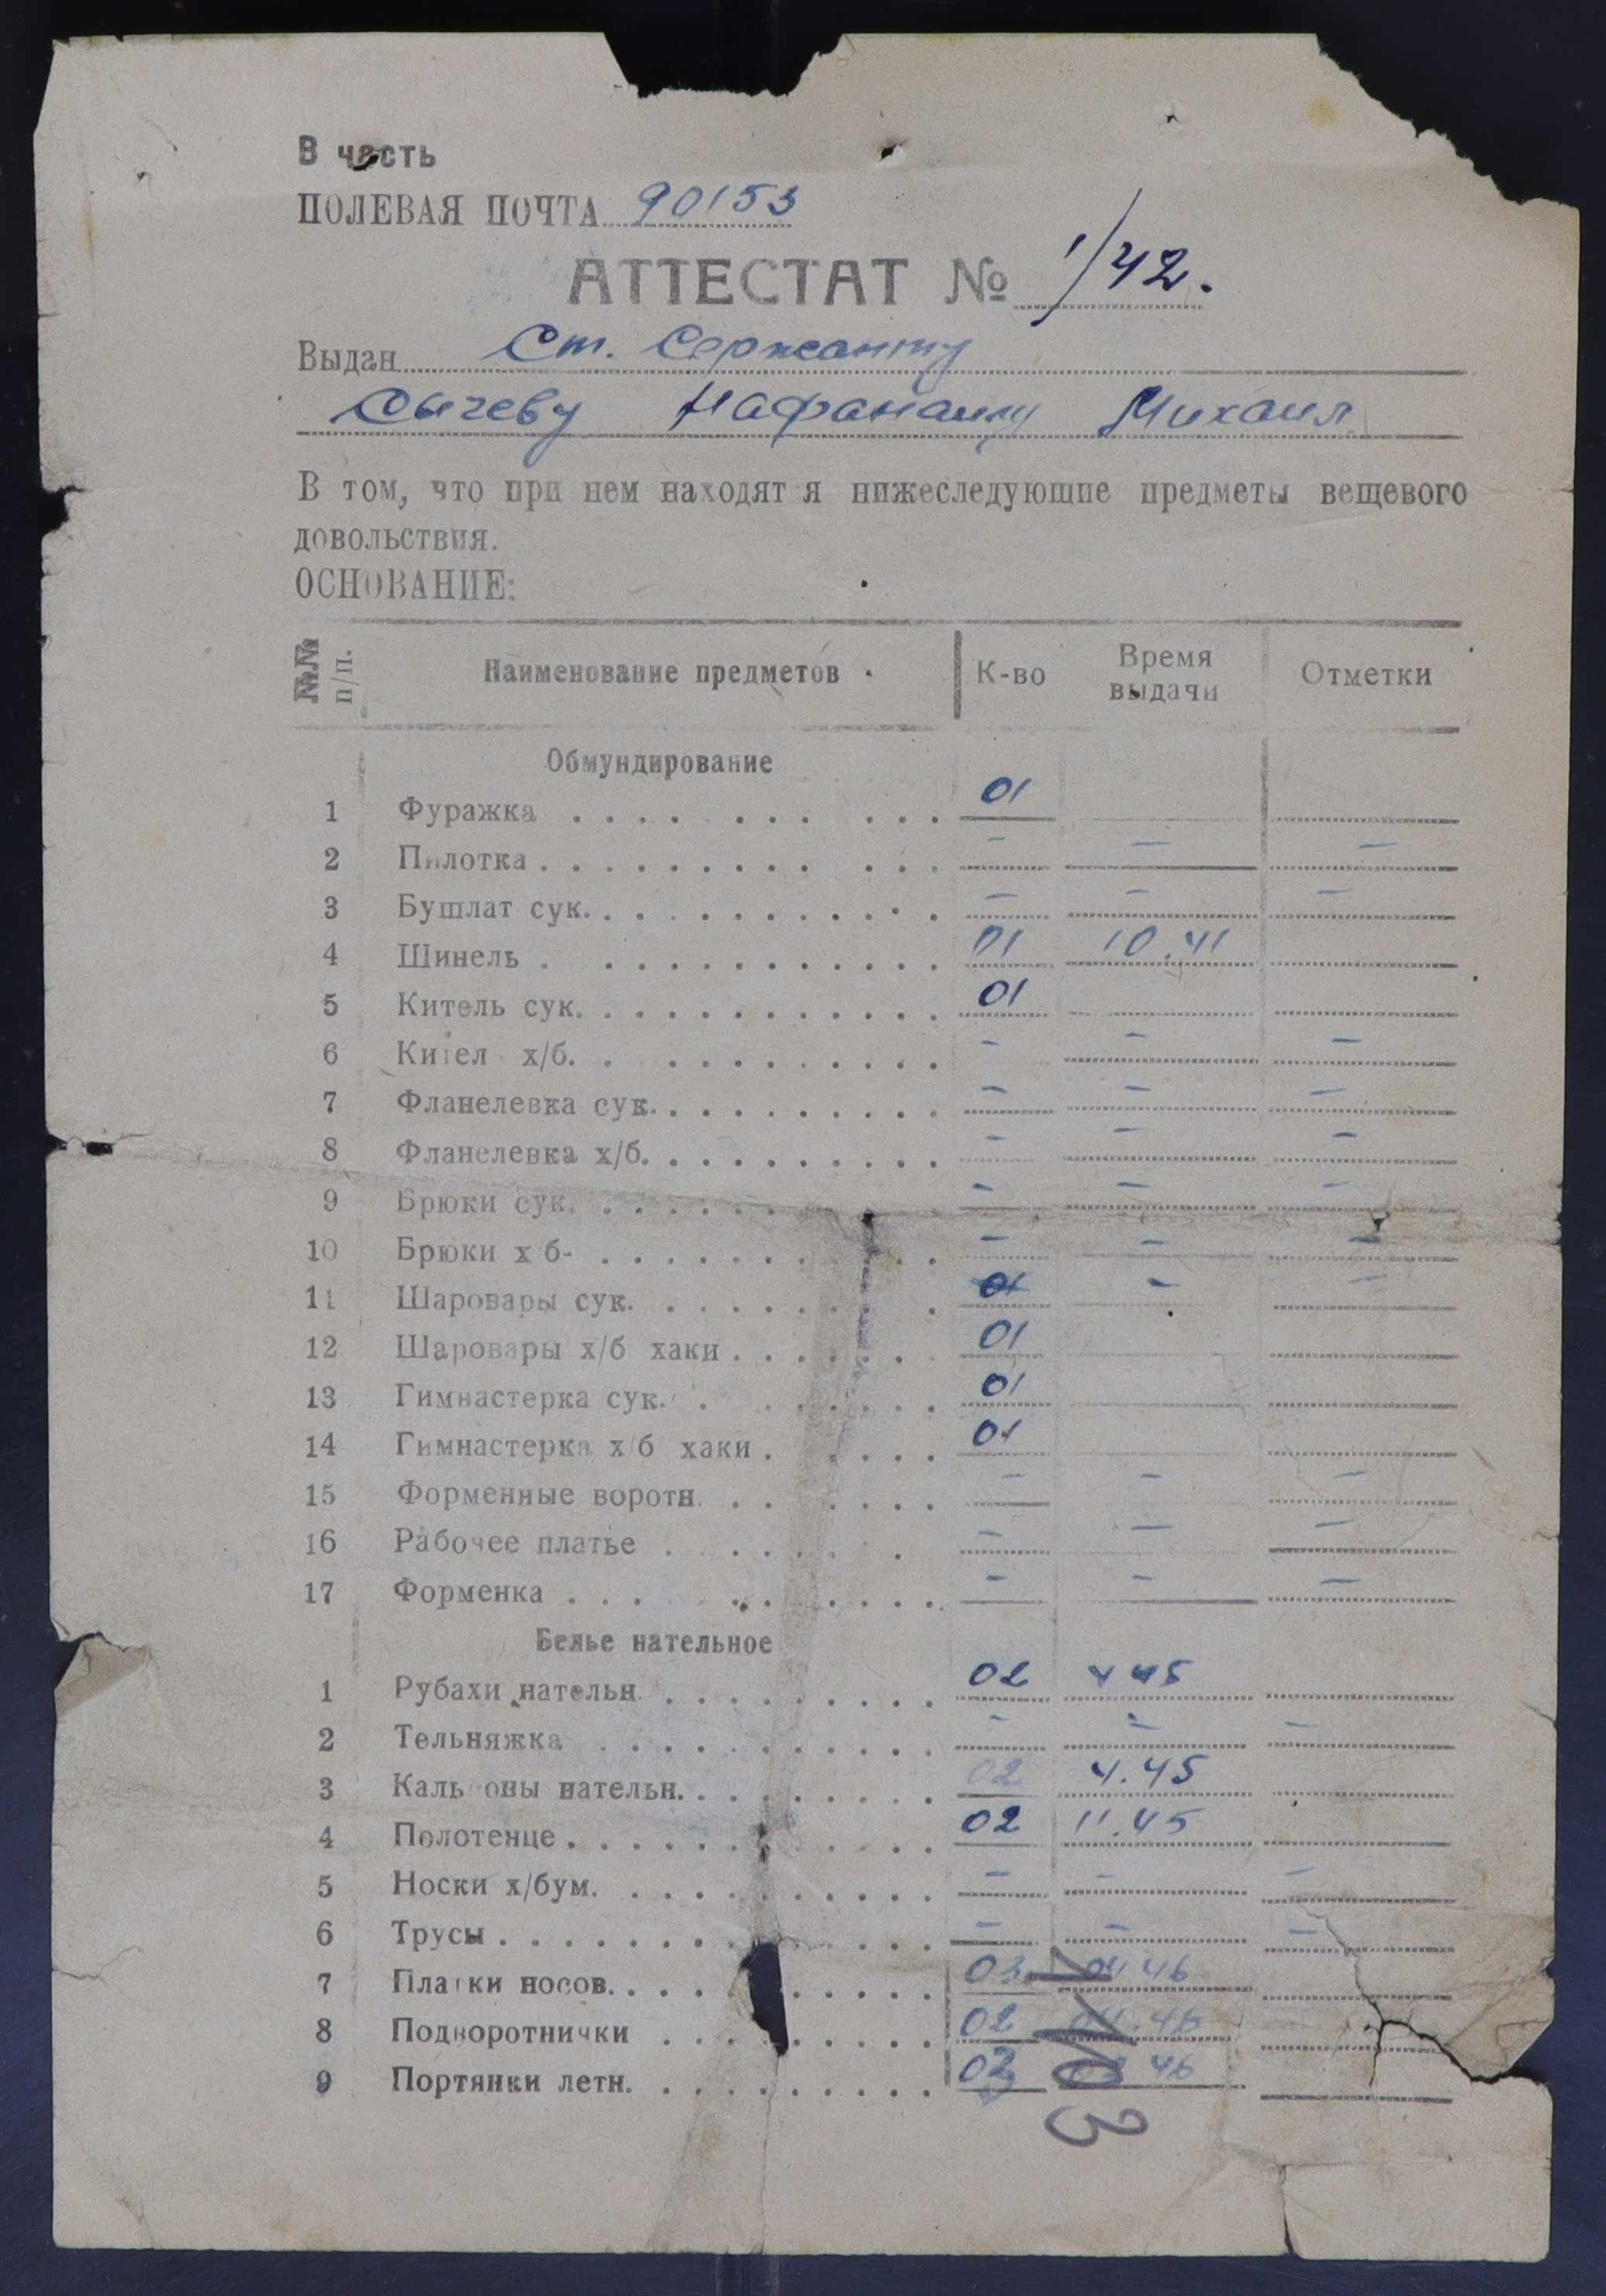 В часть
ПОЛЕВАЯ ПОЧТА 90153
АТТЕСТАТ № 1/42.
Выдан Ст. Сержанту
Сычеву Нафанаилу Михаил
В том, что при нем находят я нижеследующие предметы вещевого
довольствия.
ОСНОВАНИЕ:
№№ п/п. Наименование предметов К-во Время выдачи Отметки
Обмундирование
1 Фуражка 01
2 Пилотка — — —
3 Бушлат сук. — — —
4 Шинель 01 10.41
5 Китель сук. 01
6 Кител х/б. — — —
7 Фланелевка сук. — — —
8 Фланелевка х/б. — — —
9 Брюки сук. — — —
10 Брюки х б- — — —
11 Шаровары сук. 01 — —
12 Шаровары х/б хаки 01
13 Гимнастерка сук. 01
14 Гимнастерка х/б хаки 01
15 Форменные воротн. — — —
16 Рабочее платье — — —
17 Форменка — — —
Белье нательное
1 Рубахи нательн. 02 4 45
2 Тельняжка — — —
3 Каль оны нательн. 02 4.45
4 Полотенце 02 11.45
5 Носки х/бум. — — —
6 Трусы — — —
7 Платки носов. 03 04 46
8 Подворотнички 02 04.46
9 Портянки летн. 46